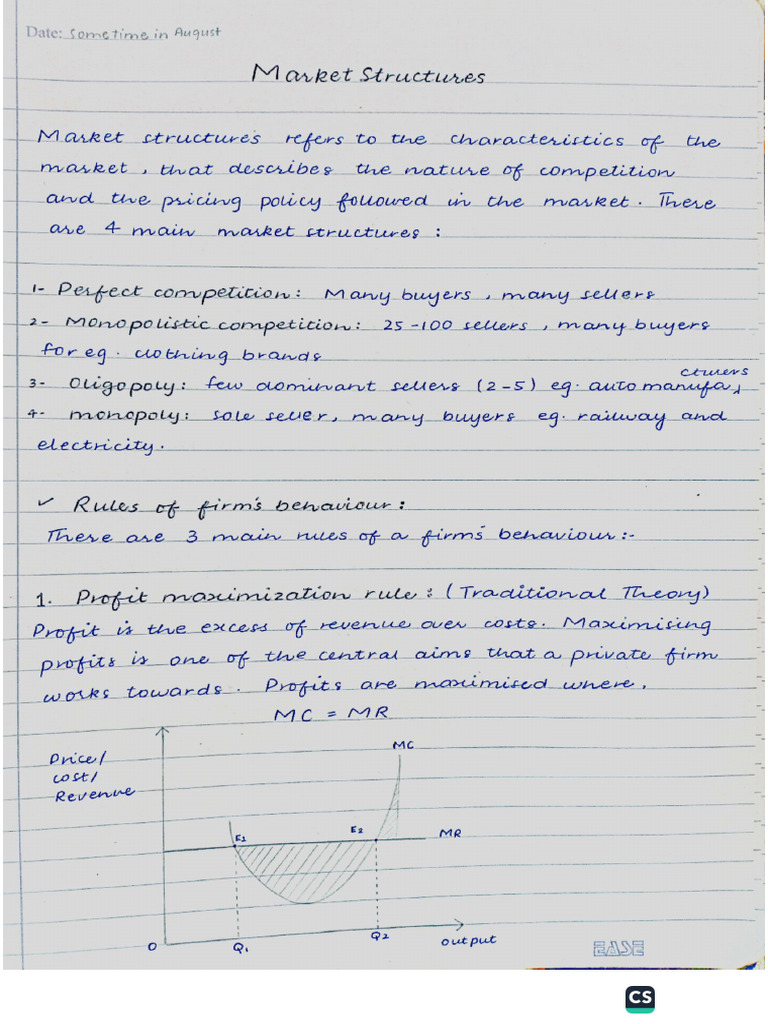 Date: Sometime in August
Market Structures
Market structures refers to the characteristics of the
market, that describes the nature of competition
and the pricing policy followed in the market. There
are 4 main market structures :
1- Perfect competition: Many buyers, many sellers
2- Monopolistic competition: 25-100 sellers, many buyers
for eg. clothing brands
3- Oligopoly: few dominant sellers (2-5) eg. auto manufacturers
4- monopoly: sole seller, many buyers eg. railway and
electricity.
✓ Rules of firm's behaviour:
There are 3 main rules of a firm's behaviour:-
1. Profit maximization rule: (Traditional Theory)
Profit is the excess of revenue over costs. Maximising
profits is one of the central aims that a private firm
works towards. Profits are maximised where,
MC = MR
Price/
cost/
Revenue
MC
E1
E2
MR
O
Q1
Q2
output
EASE
CS